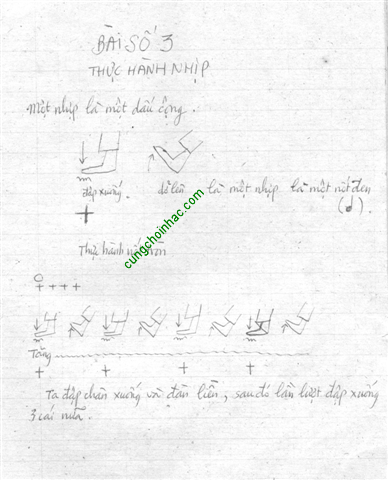 BÀI SỐ 3
THỰC HÀNH NHỊP
Một nhịp là một dấu cộng.
đập xuống. dở lên là một nhịp là một nốt đen
+ (♩)
cungchoinhac.com
Thực hành nốt tròn
++++
Tằng
+ + + +
Ta đập chân xuống và đàn liền, sau đó lần lượt đập xuống
3 cái nữa.